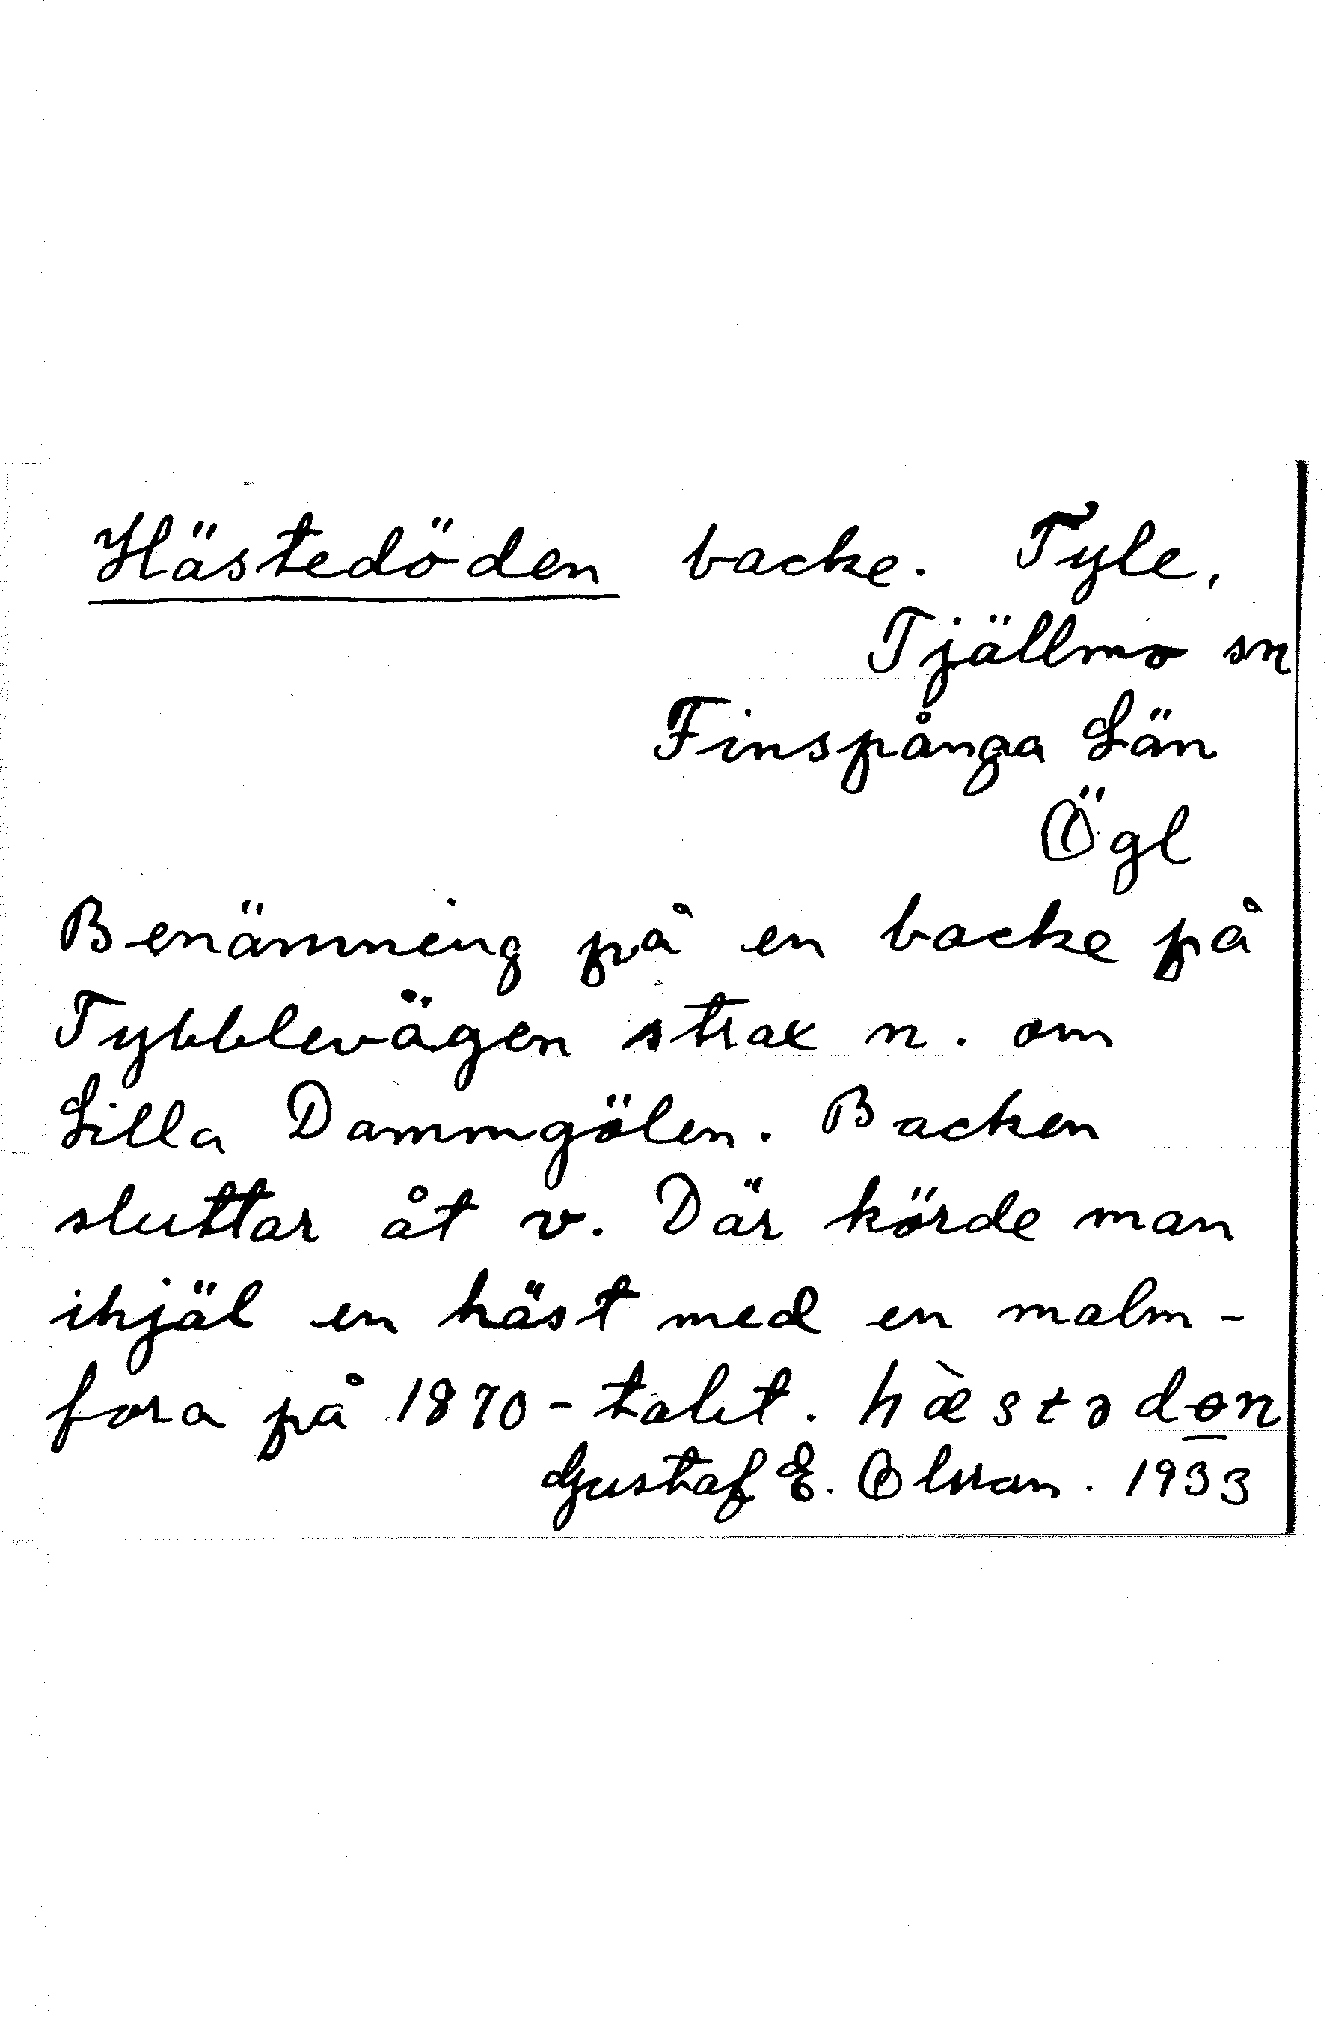 Hästedöden backe. Tyle,
Tjällmo sn
Finspånga Län
Ögl
Benämning på en backe på
Tybblevägen strax n. om
Lilla Dammgölen. Backen
sluttar åt v. Där körde man
ihjäl en häst med en malm-
fora på 1870-talet. hæ̀stədɵn
Gustaf E. Olsson. 1933